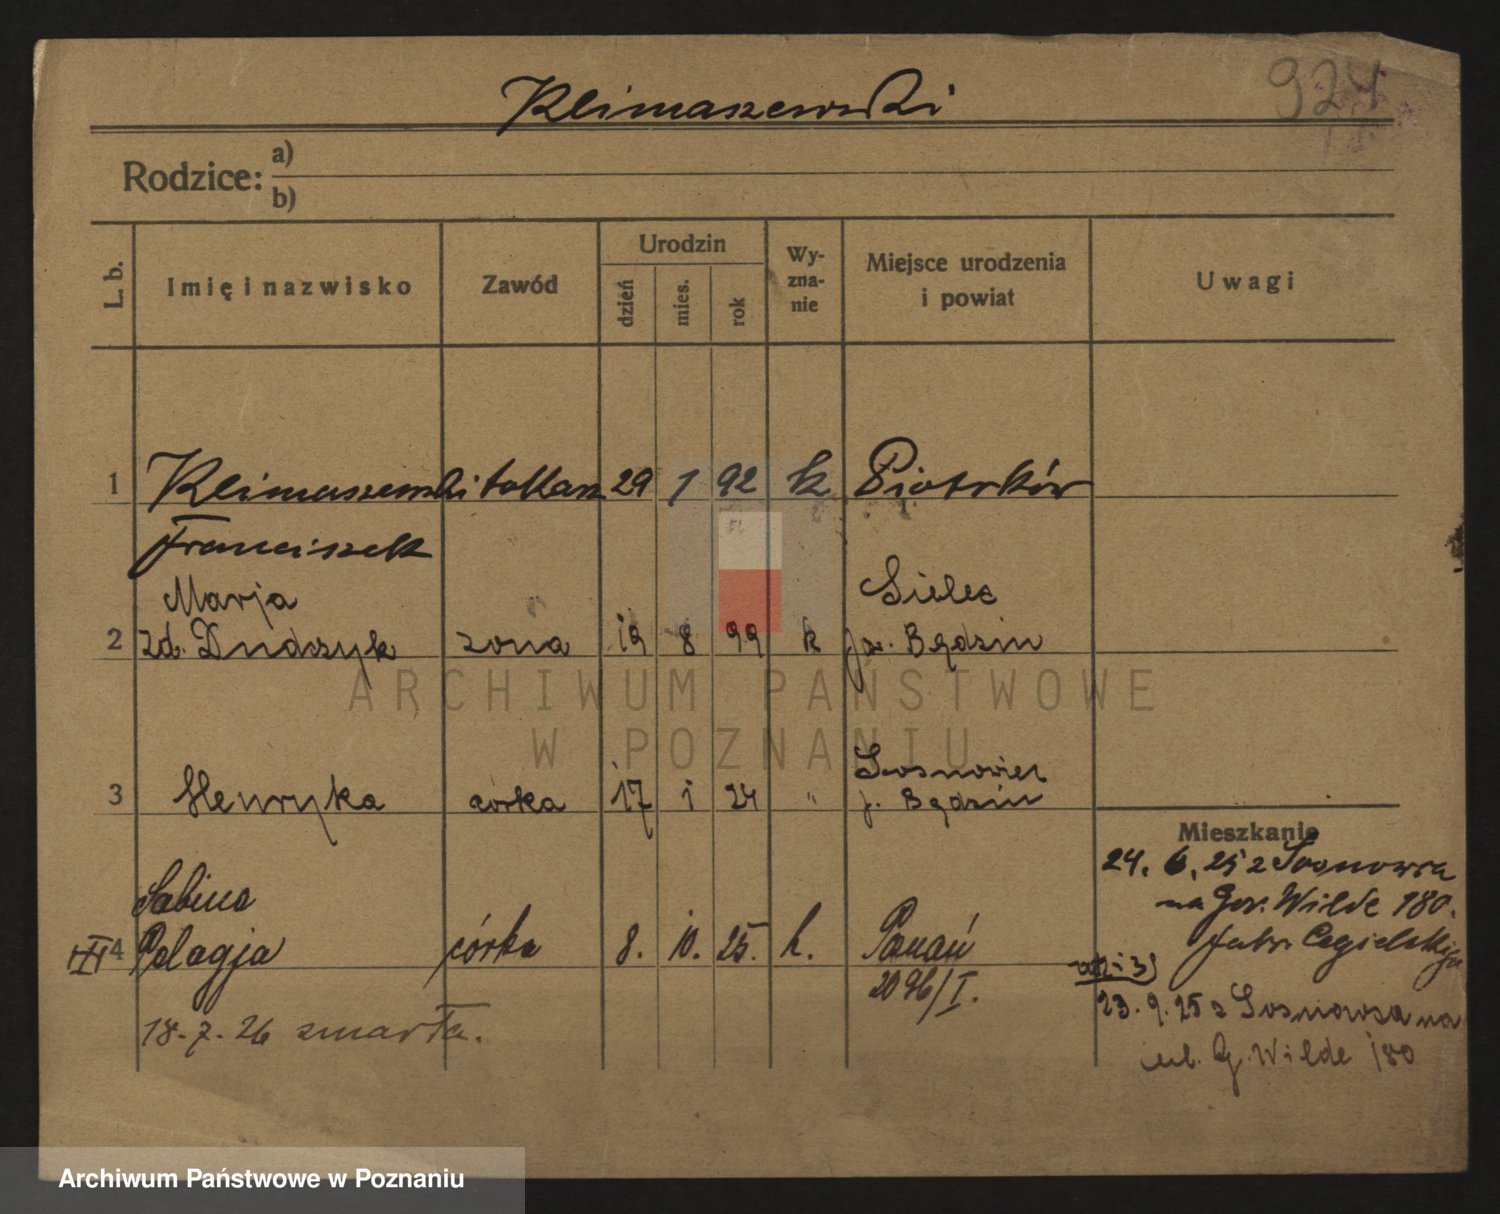 Klimaszewski
924
Rodzice: a)
b)
L. b.
Imię i nazwisko
Zawód
Urodzin
dzień
mies.
rok
Wy-
zna-
nie
Miejsce urodzenia
i powiat
Uwagi
1 Klimaszewski tokarz 29 1 92 k Piotrków
Franciszek
Marja Sielec
2 zd. Dudczyk żona 19 8 99 k pow. Będzin
ARCHIWUM PAŃSTWOWE
W POZNANIU
Sosnowiec
3 Henryka córka 17 1 24 " p. Będzin
Mieszkanie
24. 6. 25 z Sosnowca
na Gór. Wilde 180.
Sabina
4 Pelagja córka 8. 10. 25. k. Poznań
fabr. Cegielskiego
2096/I.
23. 9. 25 z Sosnowca na
18. 7. 26 zmarła.
ul. G. Wilde 180
Archiwum Państwowe w Poznaniu